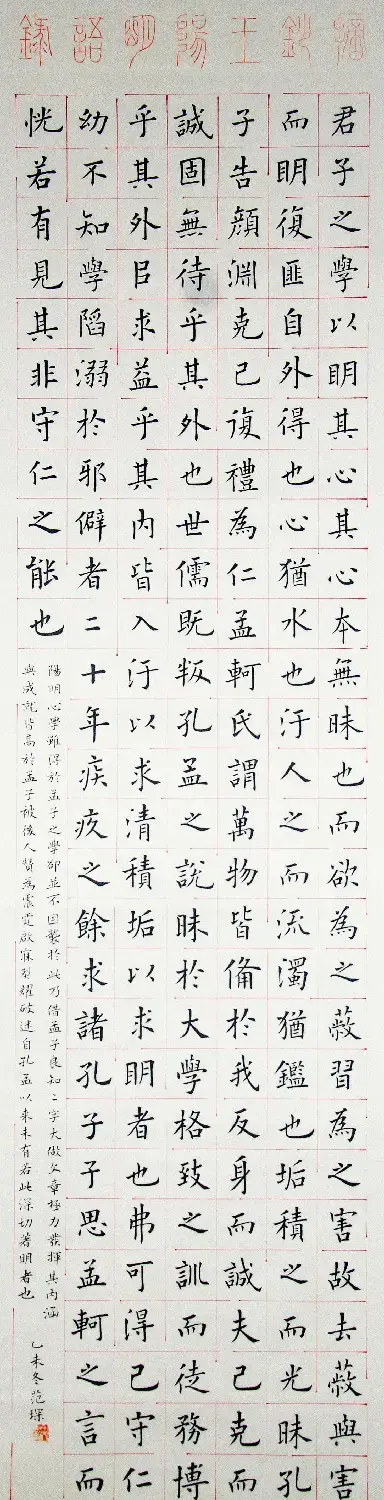 摘鈔王陽明語錄
君子之學以眀其心其心本無昧也而欲為之蔽習為之害故去蔽與害
而眀復匪自外得也心猶水也汙人之而流濁猶鑑也垢積之而光昧孔
子告顏淵克己復禮為仁孟軻氏謂萬物皆備於我反身而誠夫己克而
誠固無待乎其外也世儒既叛孔孟之說昧於大學格致之訓而徒務博
乎其外㠯求益乎其內皆入汙以求清積垢以求眀者也弗可得已守仁
幼不知學陷溺於邪僻者二十年疾疚之餘求諸孔子子思孟軻之言而
恍若有見其非守仁之能也
陽明心學雖得於孟子之學卻並不因襲於此乃借孟子良知二字大做文章極力發揮其內涵
與成就皆高於孟子被後人贊為震霆啟寐烈耀破迷自孔孟以來未有若此深切著明者也
乙未冬范琛